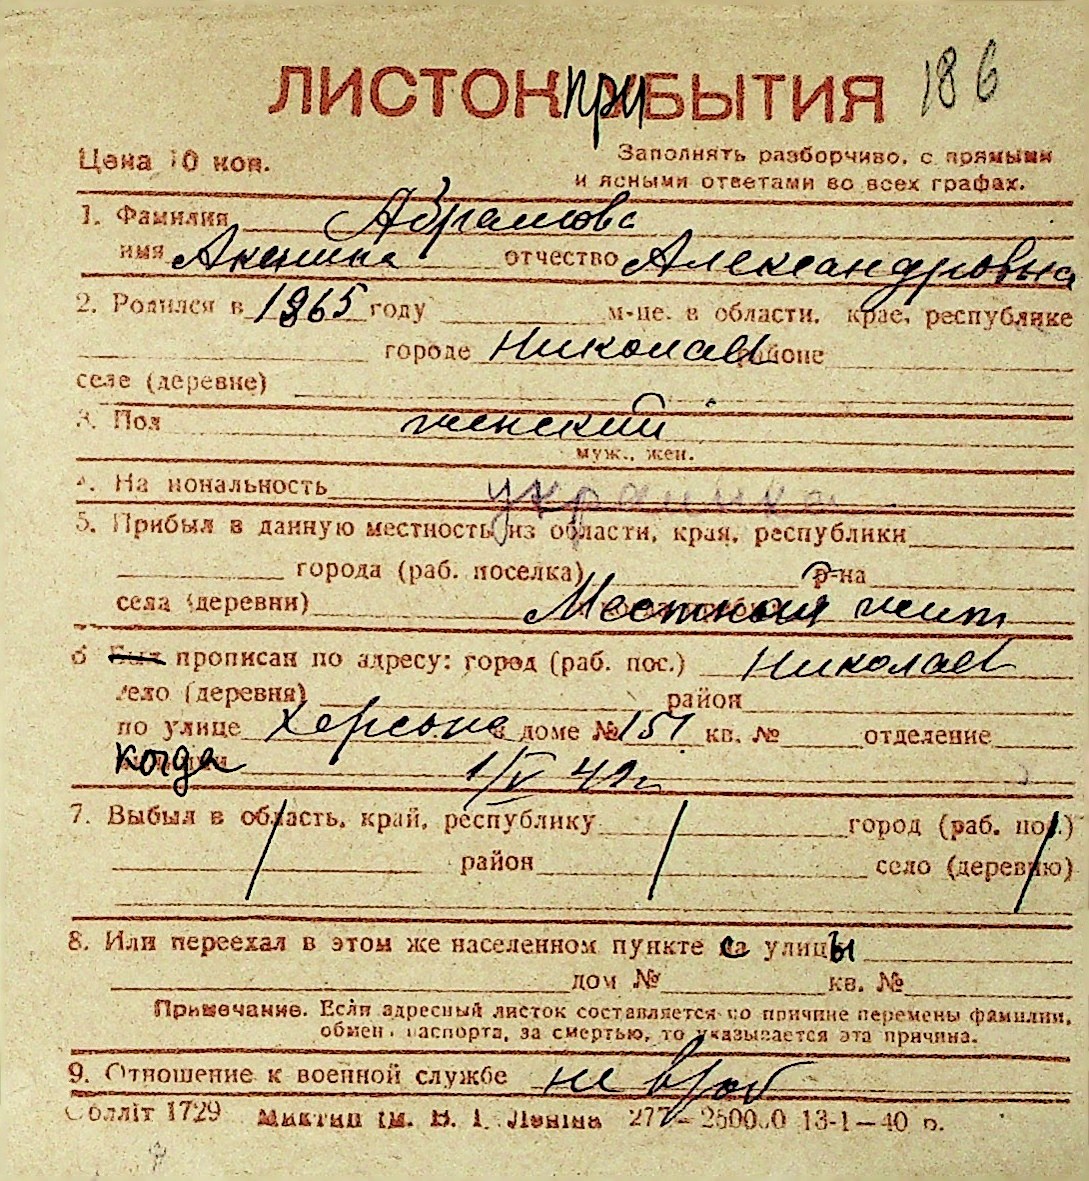 ЛИСТОК ПРИБЫТИЯ 186
Цена 10 коп.
Заполнять разборчиво, с прямыми
и ясными ответами во всех графах.
1. Фамилия Абрамова
имя Аксинья отчество Александровна
2. Родился в 1865 году м-це, в области, крае, республике
городе Николаев районе
селе (деревне)
3. Пол женский
муж., жен.
4. Национальность украинка
5. Прибыл в данную местность из области, края, республики
города (раб. поселка) р-на
села (деревни) Местная жит
6 Был прописан по адресу: город (раб. пос.) Николаев
село (деревня) район
по улице Херсонс в доме № 151 кв. № отделение
когда 1/V 42г.
7. Выбыл в область, край, республику город (раб. пос.)
район село (деревню)
8. Или переехал в этом же населенном пункте с улицы
дом № кв. №
Примечание. Если адресный листок составляется по причине перемены фамилии,
обмена паспорта, за смертью, то указывается эта причина.
9. Отношение к военной службе не в/об
Облліт 1729 Миктип ім. В. І. Леніна 277—250000 13-1—40 р.